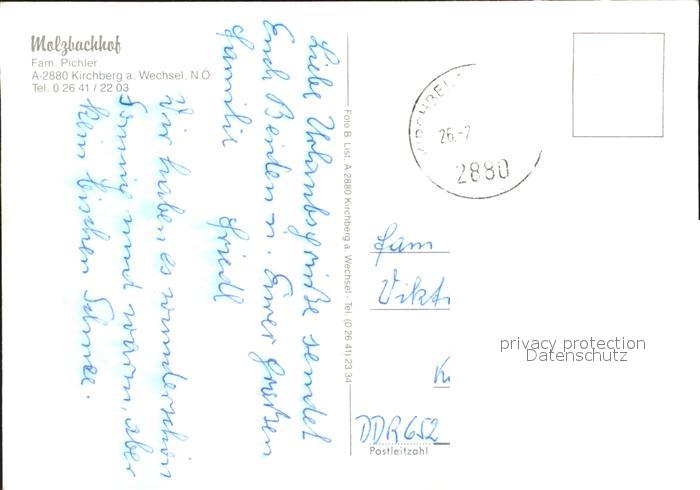 Molzbachhof
Fam. Pichler
A-2880 Kirchberg a. Wechsel, N.Ö.
Tel. 0 26 41 / 22 03
Liebe Urlaubsgrüße sendet
Euch Beiden u. Eurer großen
Familie Friedl
Wir haben es wunderschön
sonnig und warm, aber
kein bischen Schnee.
Foto B. List, A-2880 Kirchberg a. Wechsel - Tel. (0 26 41) 23 34
26.-2
2880
Fam
Vikt
K
DDR 652
Postleitzahl
privacy protection
Datenschutz